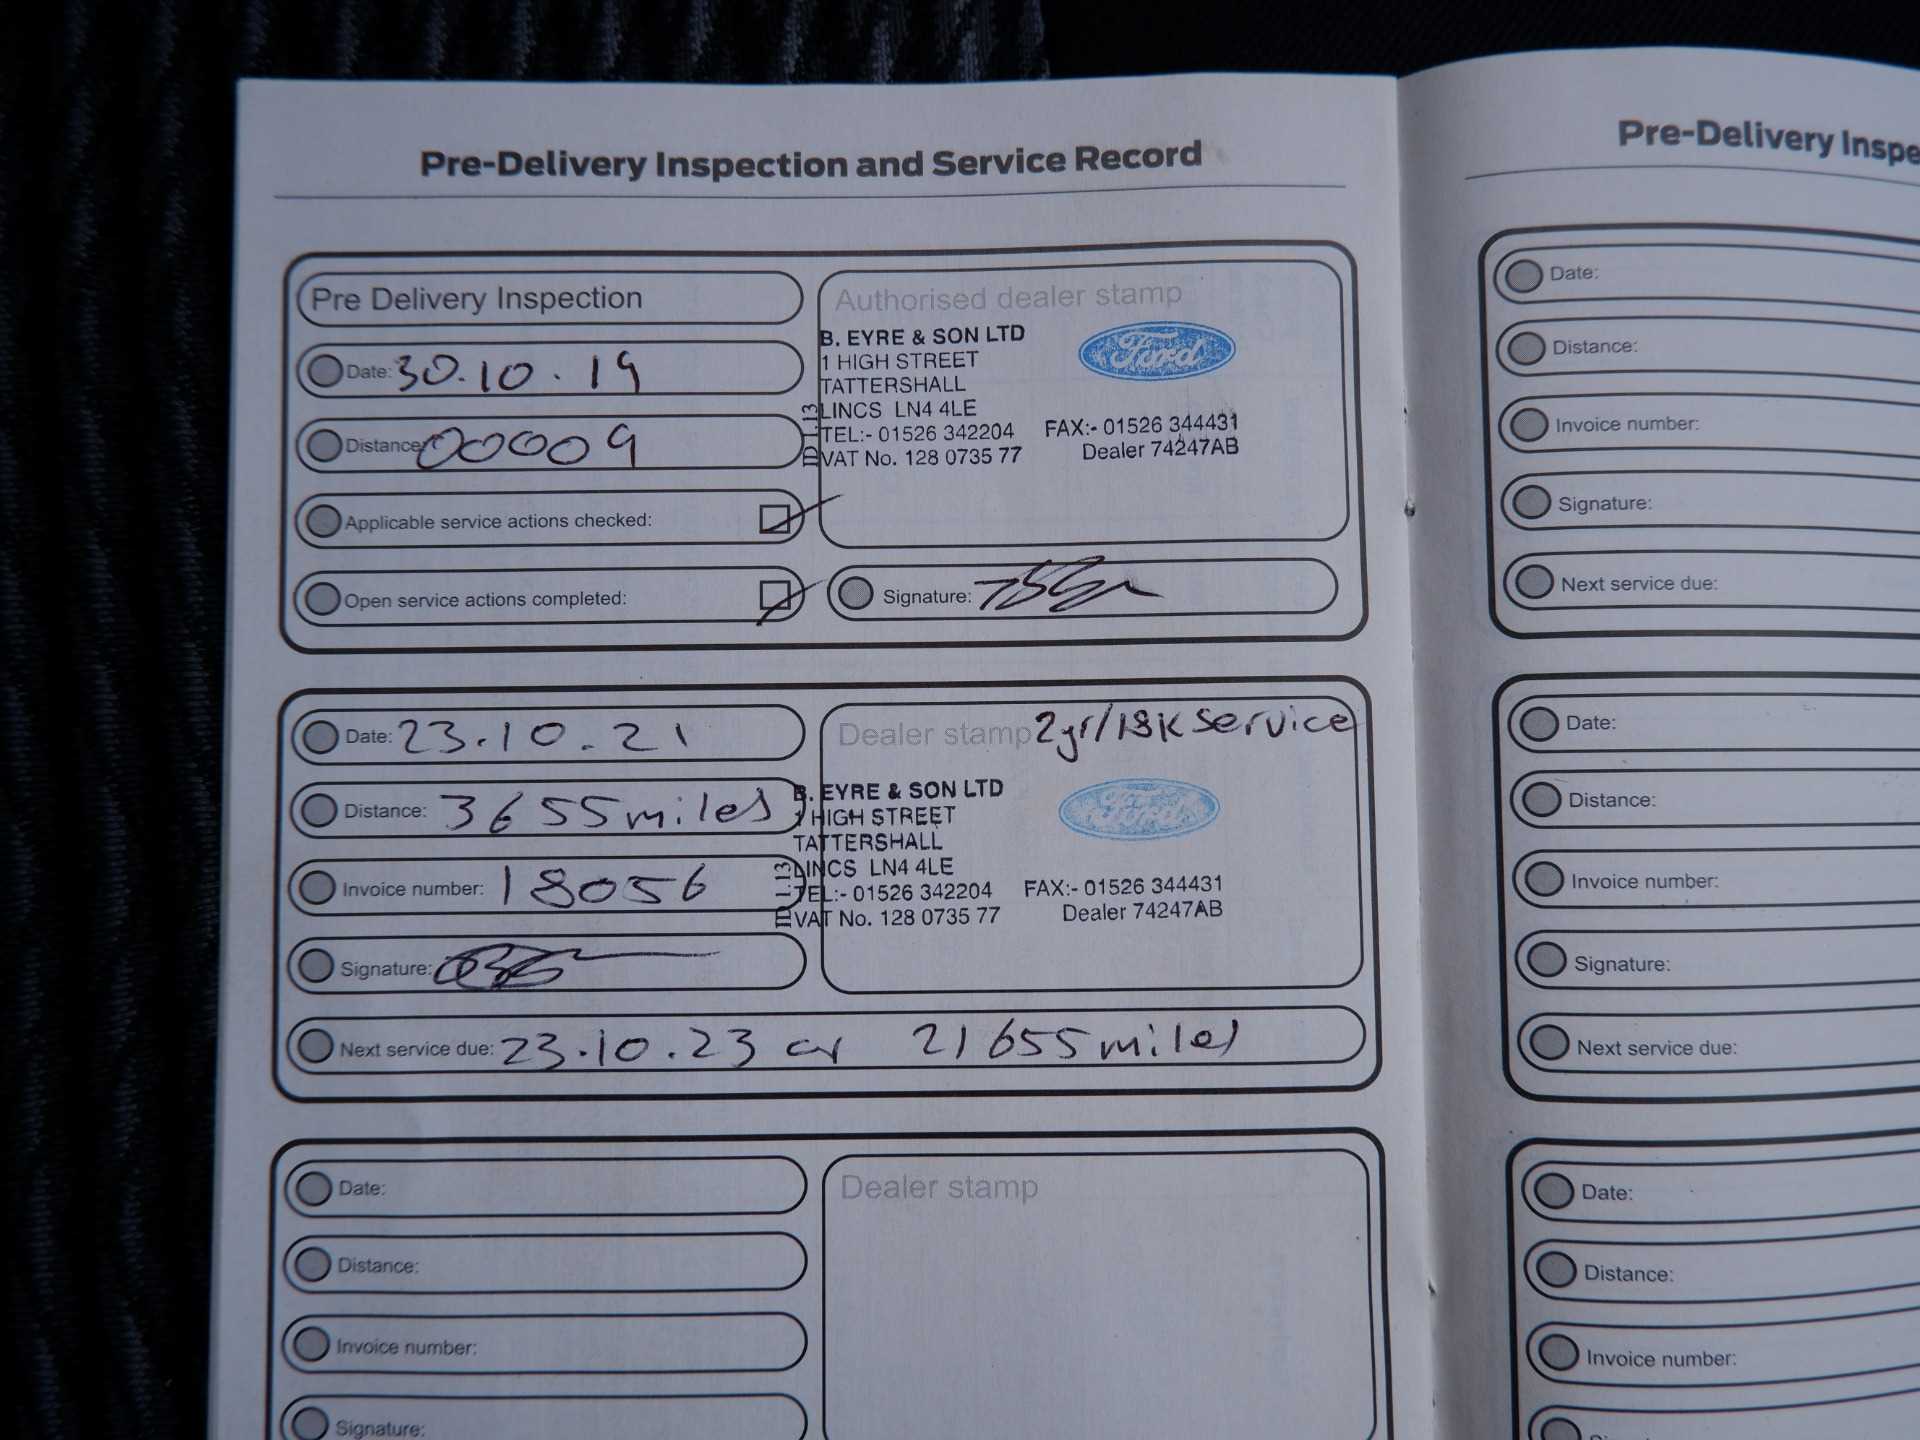 Pre-Delivery Inspection and Service Record
Pre Delivery Inspection
Date: 30.10.19
Distance: 00009
Applicable service actions checked:
Open service actions completed:
Authorised dealer stamp
B. EYRE & SON LTD
1 HIGH STREET
TATTERSHALL
LINCS LN4 4LE
TEL:- 01526 342204 FAX:- 01526 344431
VAT No. 128 0735 77 Dealer 74247AB
ID1.13
Ford
Signature:
Date: 23.10.21
Distance: 3655 miles
Invoice number: 18056
Signature:
Dealer stamp 2yr/18K Service
B. EYRE & SON LTD
1 HIGH STREET
TATTERSHALL
LINCS LN4 4LE
TEL:- 01526 342204 FAX:- 01526 344431
VAT No. 128 0735 77 Dealer 74247AB
ID1.13
Ford
Next service due: 23.10.23 or 21655 miles
Date:
Distance:
Invoice number:
Signature:
Dealer stamp
Pre-Delivery Inspe
Date:
Distance:
Invoice number:
Signature:
Next service due:
Date:
Distance:
Invoice number:
Signature:
Next service due:
Date:
Distance:
Invoice number: